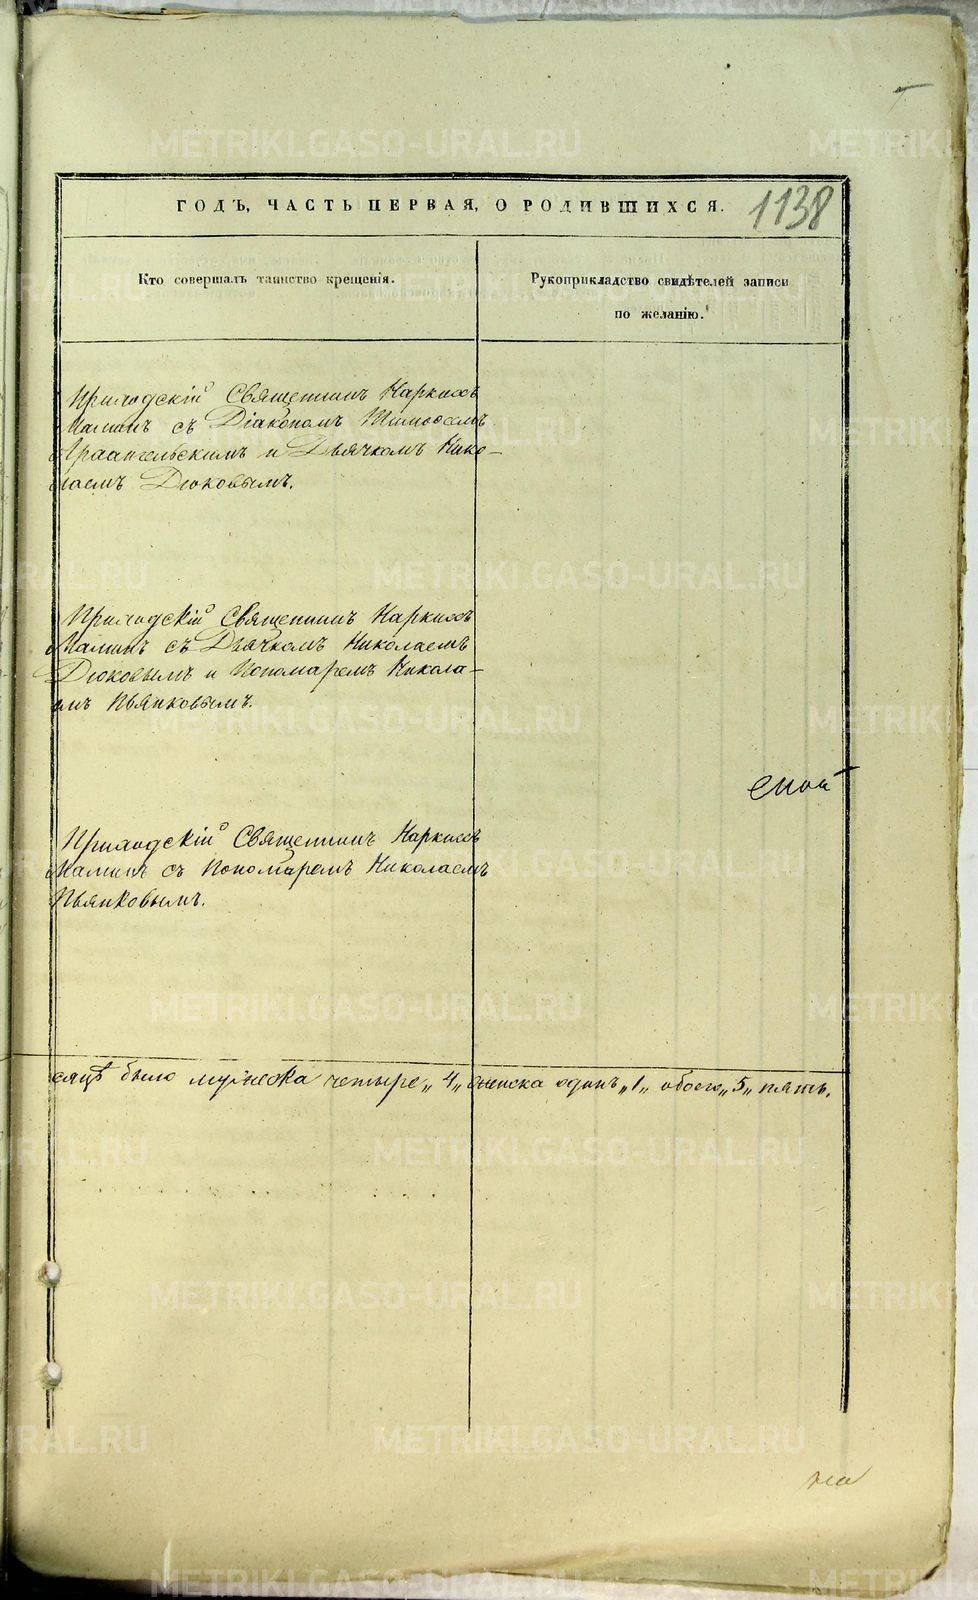 ГОДЪ, ЧАСТЬ ПЕРВАЯ, О РОДИВШИХСЯ.
1138
Кто совершалъ таинство крещенія.
Рукоприкладство свидѣтелей записи
по желанію.
Приходскій Священникъ Наркисъ
Маминъ съ Діакономъ Тимофеемъ
Архангельскимъ и Дьячкомъ Нико-
лаемъ Дюковымъ.
Приходскій Священникъ Наркисъ
Маминъ съ Дьячкомъ Николаемъ
Дюковымъ и Пономаремъ Никола-
емъ Пьянковымъ.
Приходскій Священникъ Наркисъ
Маминъ съ Пономаремъ Николаемъ
Пьянковымъ.
сяцѣ было мужеска четыре „4„ женска одинъ „1„ обоего „5„ пять.
METRIKI.GASO-URAL.RU